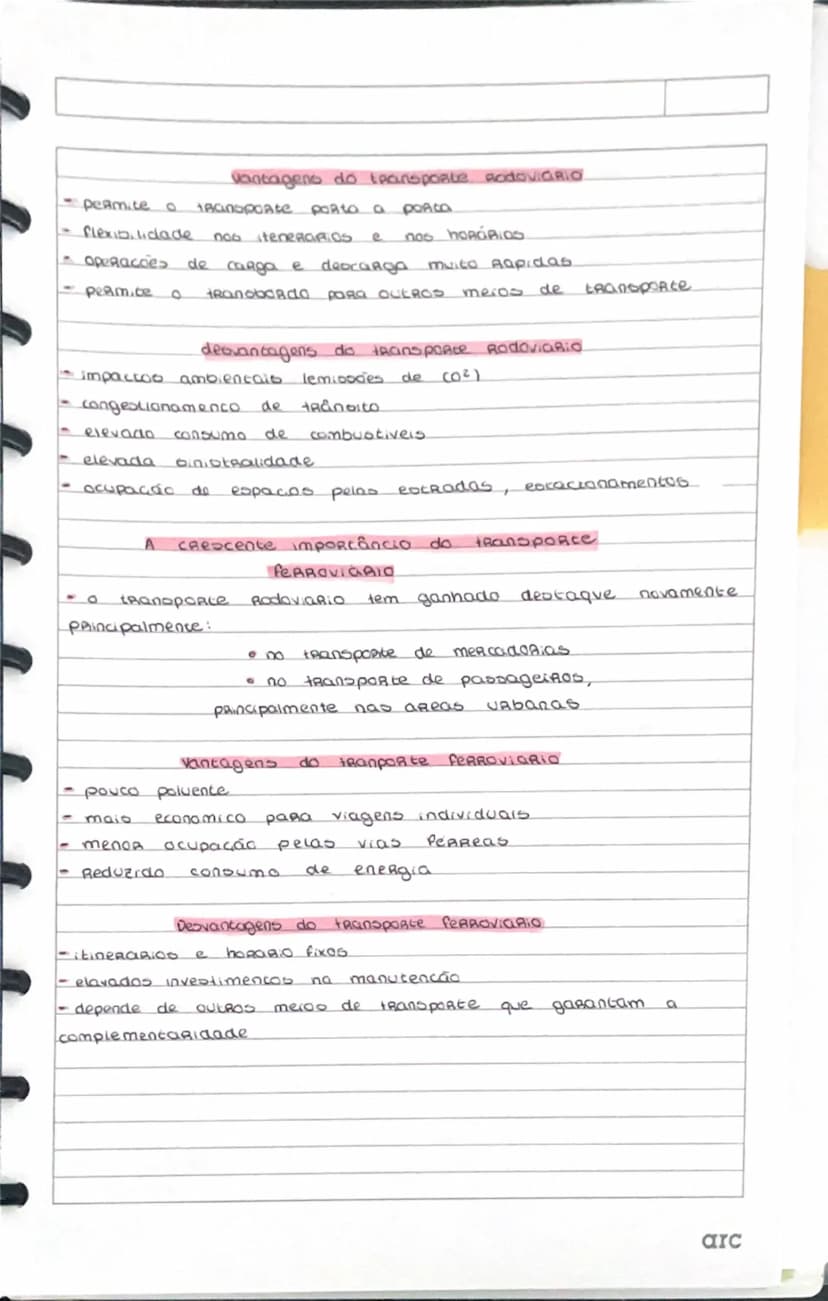 Vantagens do transporte Rodoviário
- permite o transporte porta a porta
- flexibilidade nos itenerarios e nos horários
- operacões de carga e descarga muito Rapidas
- permite o transbordo para outros meios de transporte
desvantagens do transporte Rodoviario
- impactos ambientais (emissões de CO²)
- congestionamento de trânsito
- elevado consumo de combustiveis
- elevada sinistralidade
- ocupacão de espacos pelas estradas, estacionamentos
A crescente importância do transporte
ferroviário
- o transporte Rodoviario tem ganhado destaque novamente
principalmente:
• no transporte de mercadorias
• no transporte de passageiros,
principalmente nas areas urbanas
Vantagens do tranporte ferroviario
- pouco poluente
- mais economico para viagens individuais
- menor ocupacão pelas vias férreas
- Reduzido consumo de energia
Desvantagens do transporte ferroviário
- itinerarios e horario fixos
- elavados investimentos na manutencão
- depende de outros meios de transporte que garantam a
complementaridade
arc